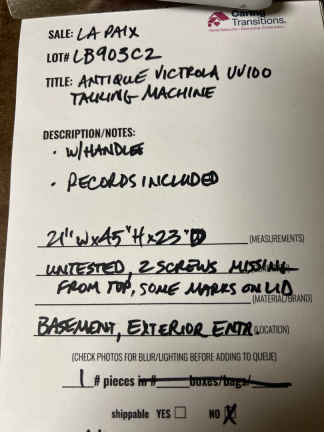 Caring
Transitions.
SALE: LA PAIX
LOT# LB903C2
TITLE: ANTIQUE VICTROLA VV100
TALKING MACHINE
DESCRIPTION/NOTES:
· W/HANDLE
· RECORDS INCLUDED
21"W x 45"H x 23"D (MEASUREMENTS)
UNTESTED, 2 SCREWS MISSING
FROM TOP, SOME MARKS ON LID
(MATERIAL/BRAND)
BASEMENT, EXTERIOR ENTR. (LOCATION)
(CHECK PHOTOS FOR BLUR/LIGHTING BEFORE ADDING TO QUEUE)
1 # pieces in # boxes/bags/
shippable YES ☐ NO ☒